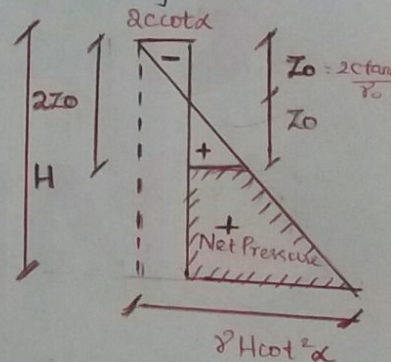 2ccotα
−
Zo = 2ctan
γo
2Zo
Zo
+
H
+
Net Pressure
γHcot²α